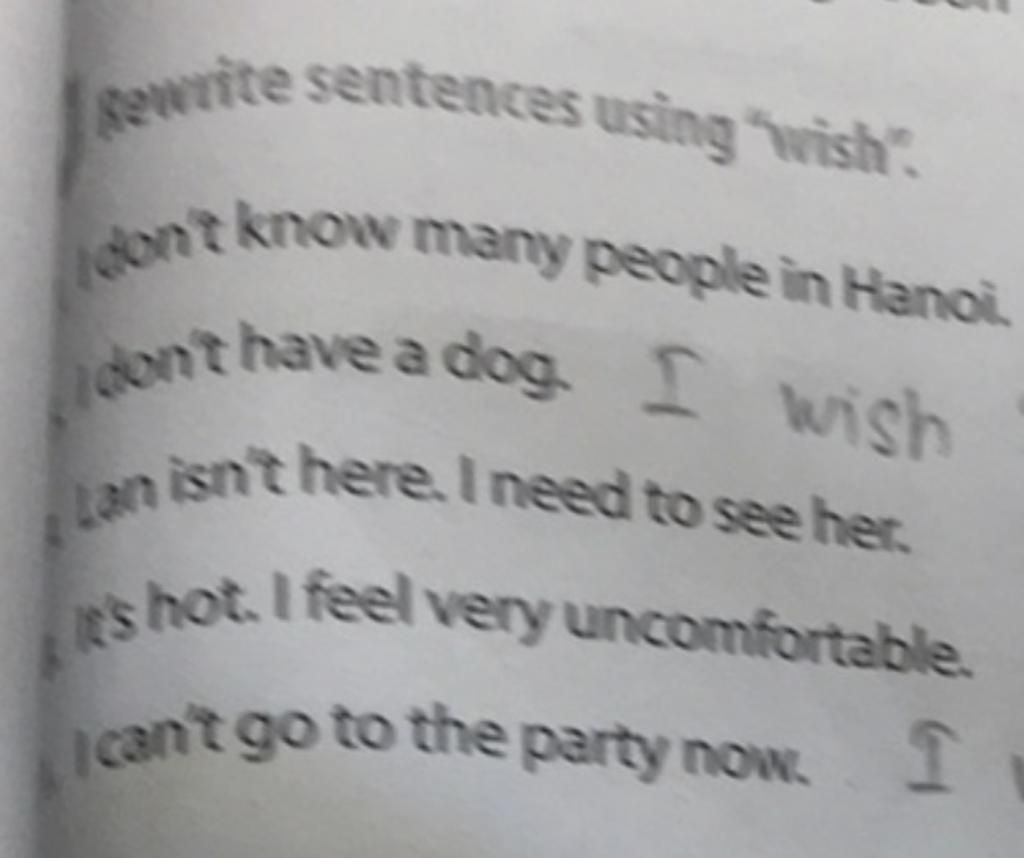 Rewrite sentences using "wish".
I don't know many people in Hanoi.
I don't have a dog. I wish
Lan isn't here. I need to see her.
It's hot. I feel very uncomfortable.
I can't go to the party now. I